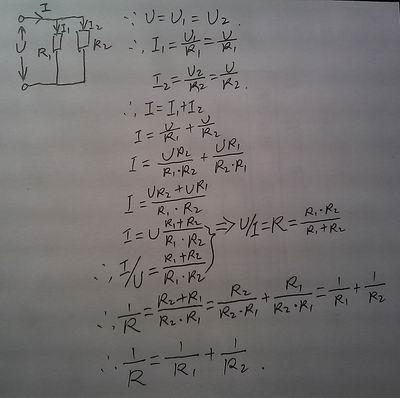 I
I₁ I₂
U R₁ R₂
∵ U = U₁ = U₂.
∴ I₁ = U₁/R₁ = U/R₁
I₂ = U₂/R₂ = U/R₂.
∴ I = I₁ + I₂
I = U/R₁ + U/R₂
I = UR₂/R₁·R₂ + UR₁/R₂·R₁
I = UR₂ + UR₁/R₁·R₂
I = U R₁+R₂/R₁·R₂ ⇒ U/I = R = R₁·R₂/R₁+R₂
∴ I/U = R₁+R₂/R₁·R₂
∴ 1/R = R₂+R₁/R₂·R₁ = R₂/R₂·R₁ + R₁/R₂·R₁ = 1/R₁ + 1/R₂
∴ 1/R = 1/R₁ + 1/R₂.